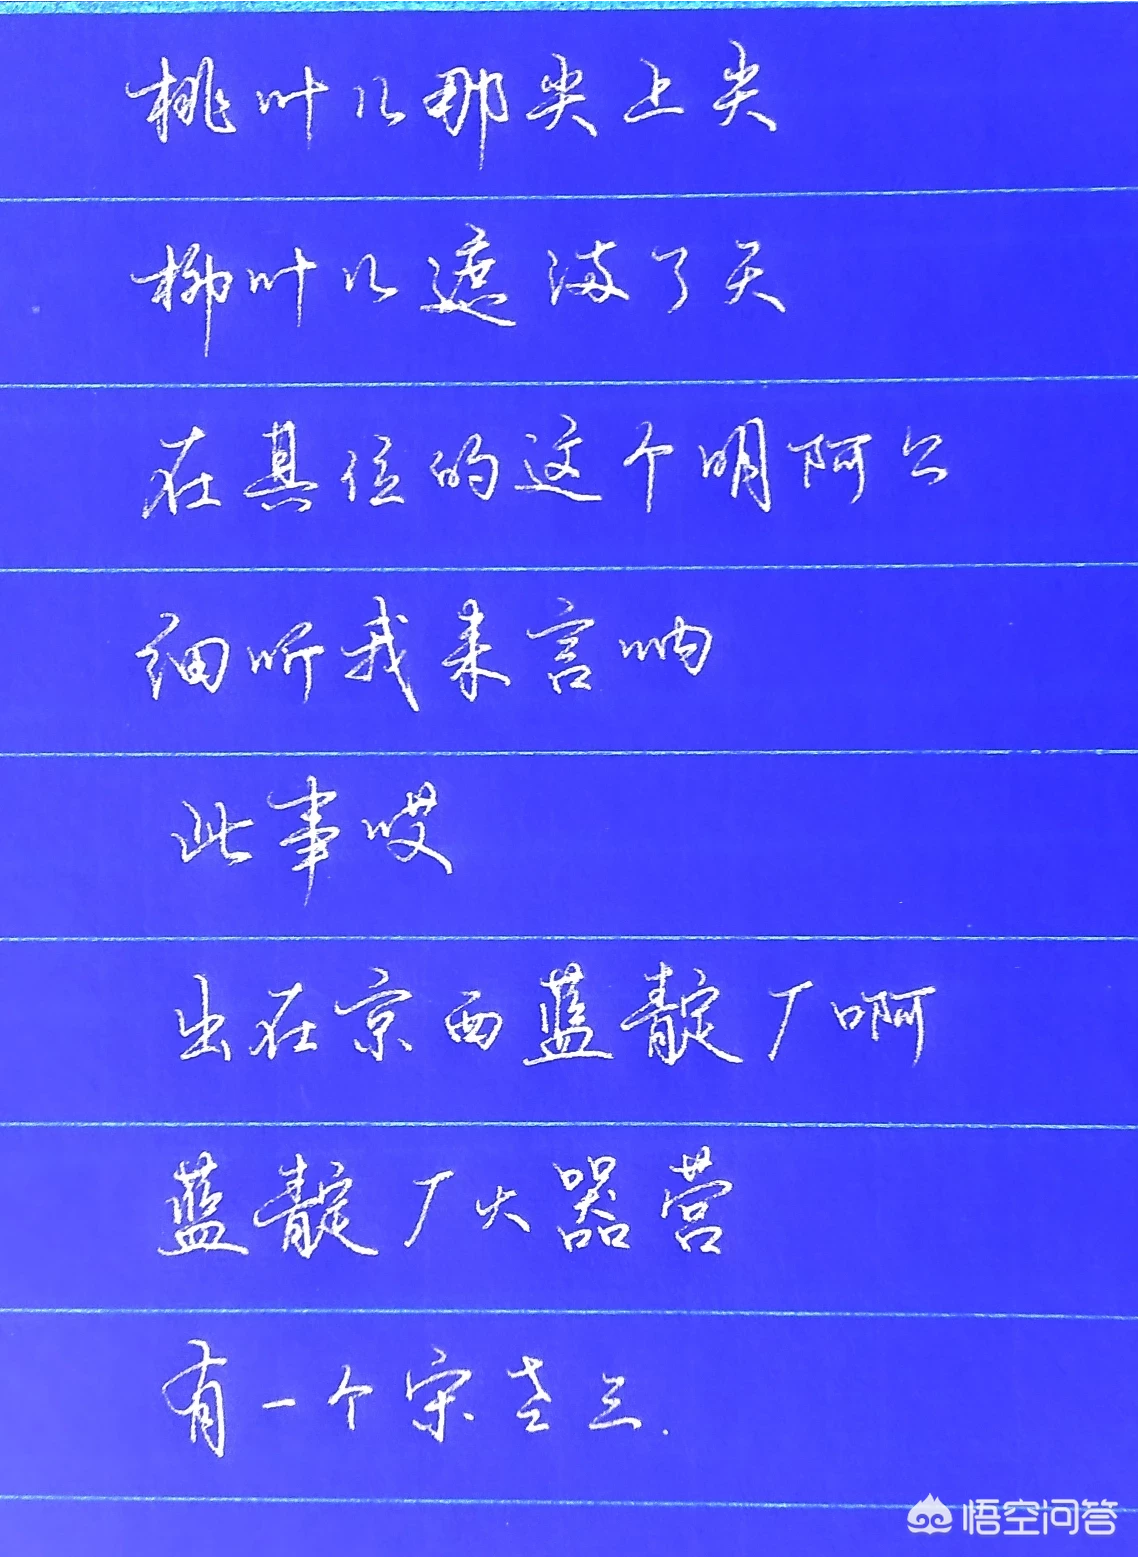 桃叶儿那尖上尖
柳叶儿遮满了天
在其位的这个明阿公
细听我来言呐
此事哎
出在京西蓝靛厂啊
蓝靛厂火器营
有一个宋老三.
悟空问答